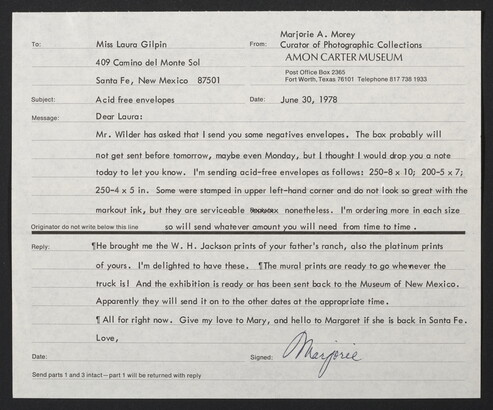 To: Miss Laura Gilpin
409 Camino del Monte Sol
Santa Fe, New Mexico 87501
From: Marjorie A. Morey
Curator of Photographic Collections
AMON CARTER MUSEUM
Post Office Box 2365
Fort Worth, Texas 76101 Telephone 817 738 1933
Subject: Acid free envelopes
Date: June 30, 1978
Message: Dear Laura:
Mr. Wilder has asked that I send you some negatives envelopes. The box probably will
not get sent before tomorrow, maybe even Monday, but I thought I would drop you a note
today to let you know. I'm sending acid-free envelopes as follows: 250-8 x 10; 200-5 x 7;
250-4 x 5 in. Some were stamped in upper left-hand corner and do not look so great with the
markout ink, but they are serviceable nonetheless. I'm ordering more in each size
Originator do not write below this line so will send whatever amount you will need from time to time .
Reply: ¶He brought me the W. H. Jackson prints of your father's ranch, also the platinum prints
of yours. I'm delighted to have these. ¶The mural prints are ready to go whenever the
truck is! And the exhibition is ready or has been sent back to the Museum of New Mexico.
Apparently they will send it on to the other dates at the appropriate time.
¶ All for right now. Give my love to Mary, and hello to Margaret if she is back in Santa Fe.
Love,
Date:
Signed: Marjorie
Send parts 1 and 3 intact—part 1 will be returned with reply